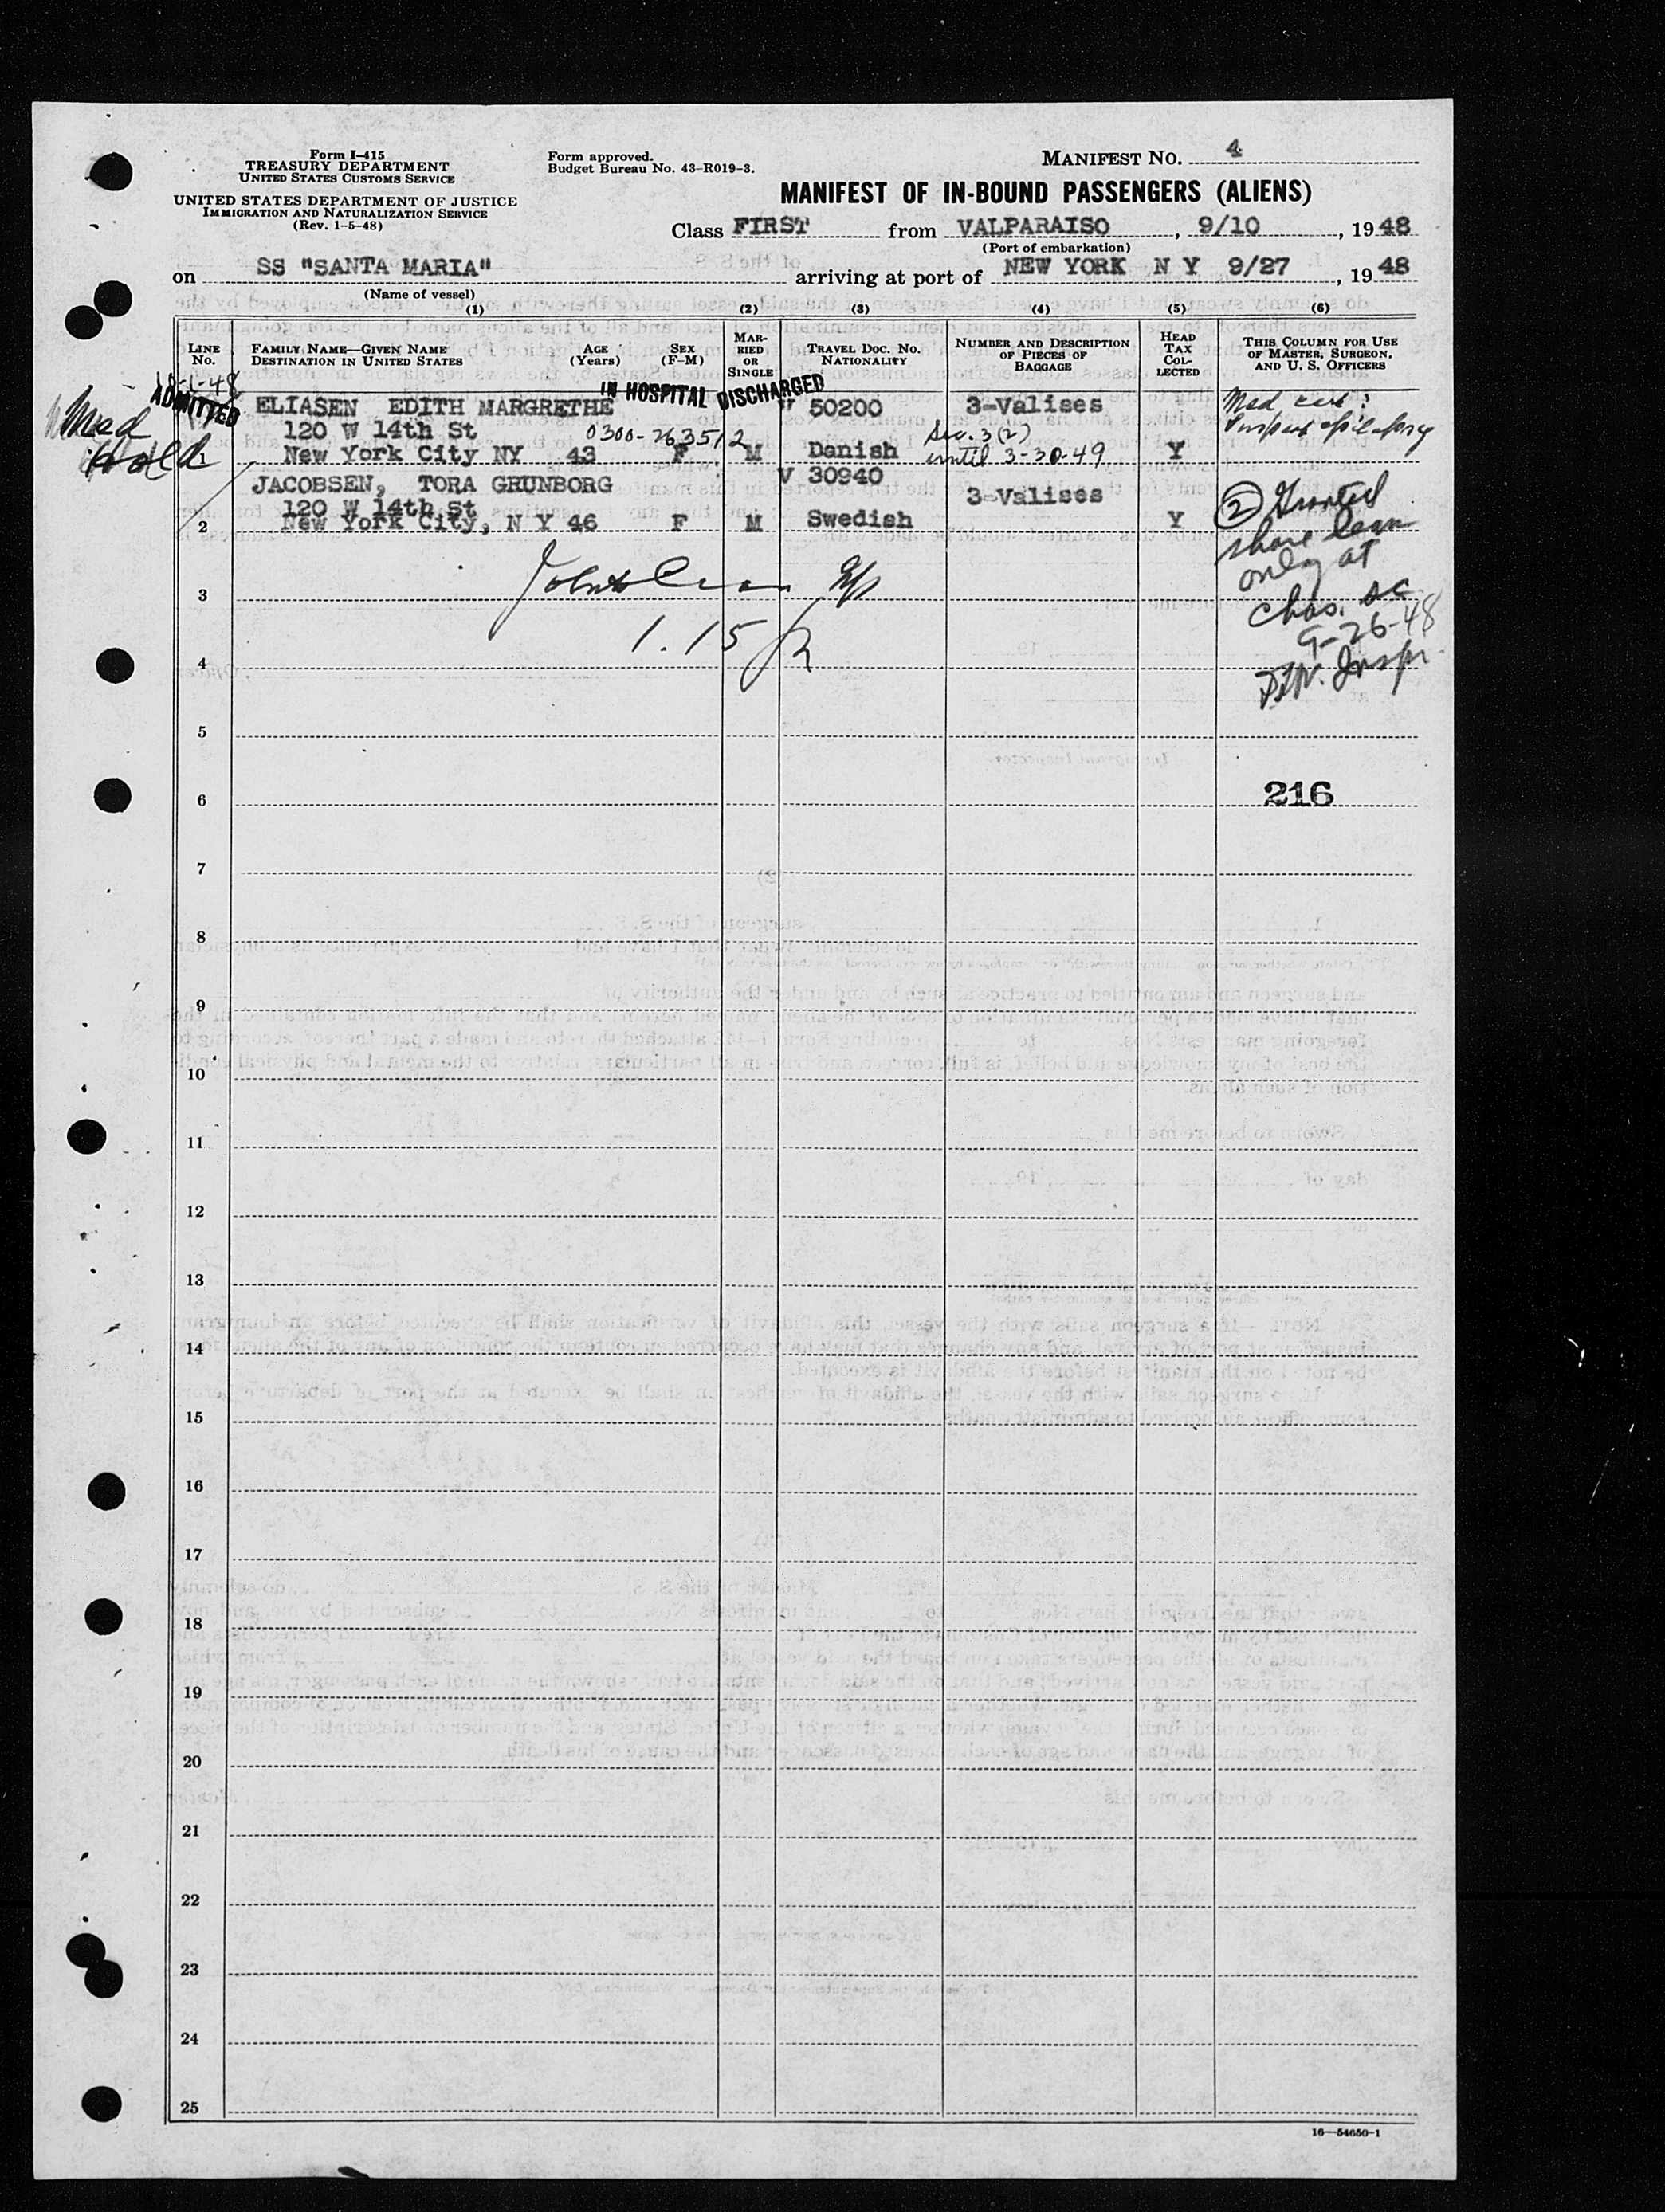 Form I-415
TREASURY DEPARTMENT
UNITED STATES CUSTOMS SERVICE
UNITED STATES DEPARTMENT OF JUSTICE
IMMIGRATION AND NATURALIZATION SERVICE
(Rev. 1-5-48)
Form approved.
Budget Bureau No. 43-R019-3.
MANIFEST NO. 4
MANIFEST OF IN-BOUND PASSENGERS (ALIENS)
Class FIRST from VALPARAISO, 9/10, 1948
(Port of embarkation)
on SS "SANTA MARIA" arriving at port of NEW YORK N Y 9/27, 1948
(Name of vessel)
(1) (2) (3) (4) (5) (6)
LINE No.
FAMILY NAME—GIVEN NAME
DESTINATION IN UNITED STATES
AGE (Years)
SEX (F-M)
MARRIED OR SINGLE
TRAVEL DOC. NO. NATIONALITY
NUMBER AND DESCRIPTION OF PIECES OF BAGGAGE
HEAD TAX COLLECTED
THIS COLUMN FOR USE OF MASTER, SURGEON, AND U. S. OFFICERS
ADMITTED
IN HOSPITAL DISCHARGED
Med Hold
ELIASEN EDITH MARGRETHE V 50200 3-Valises
120 W 14th St 0300-263512 Sec. 3(2)
1 New York City NY 43 F M Danish until 3-30-49 Y
Med cert:
JACOBSEN, TORA GRUNBORG V 30940 3-Valises
120 W 14th St
2 New York City, N Y 46 F M Swedish Y
② Granted
shore leave
only at
Chas. SC
9-26-48
Inspr.
3
1.15
4
5
6 216
7
8
9
10
11
12
13
14
15
16
17
18
19
20
21
22
23
24
25
16—54650-1